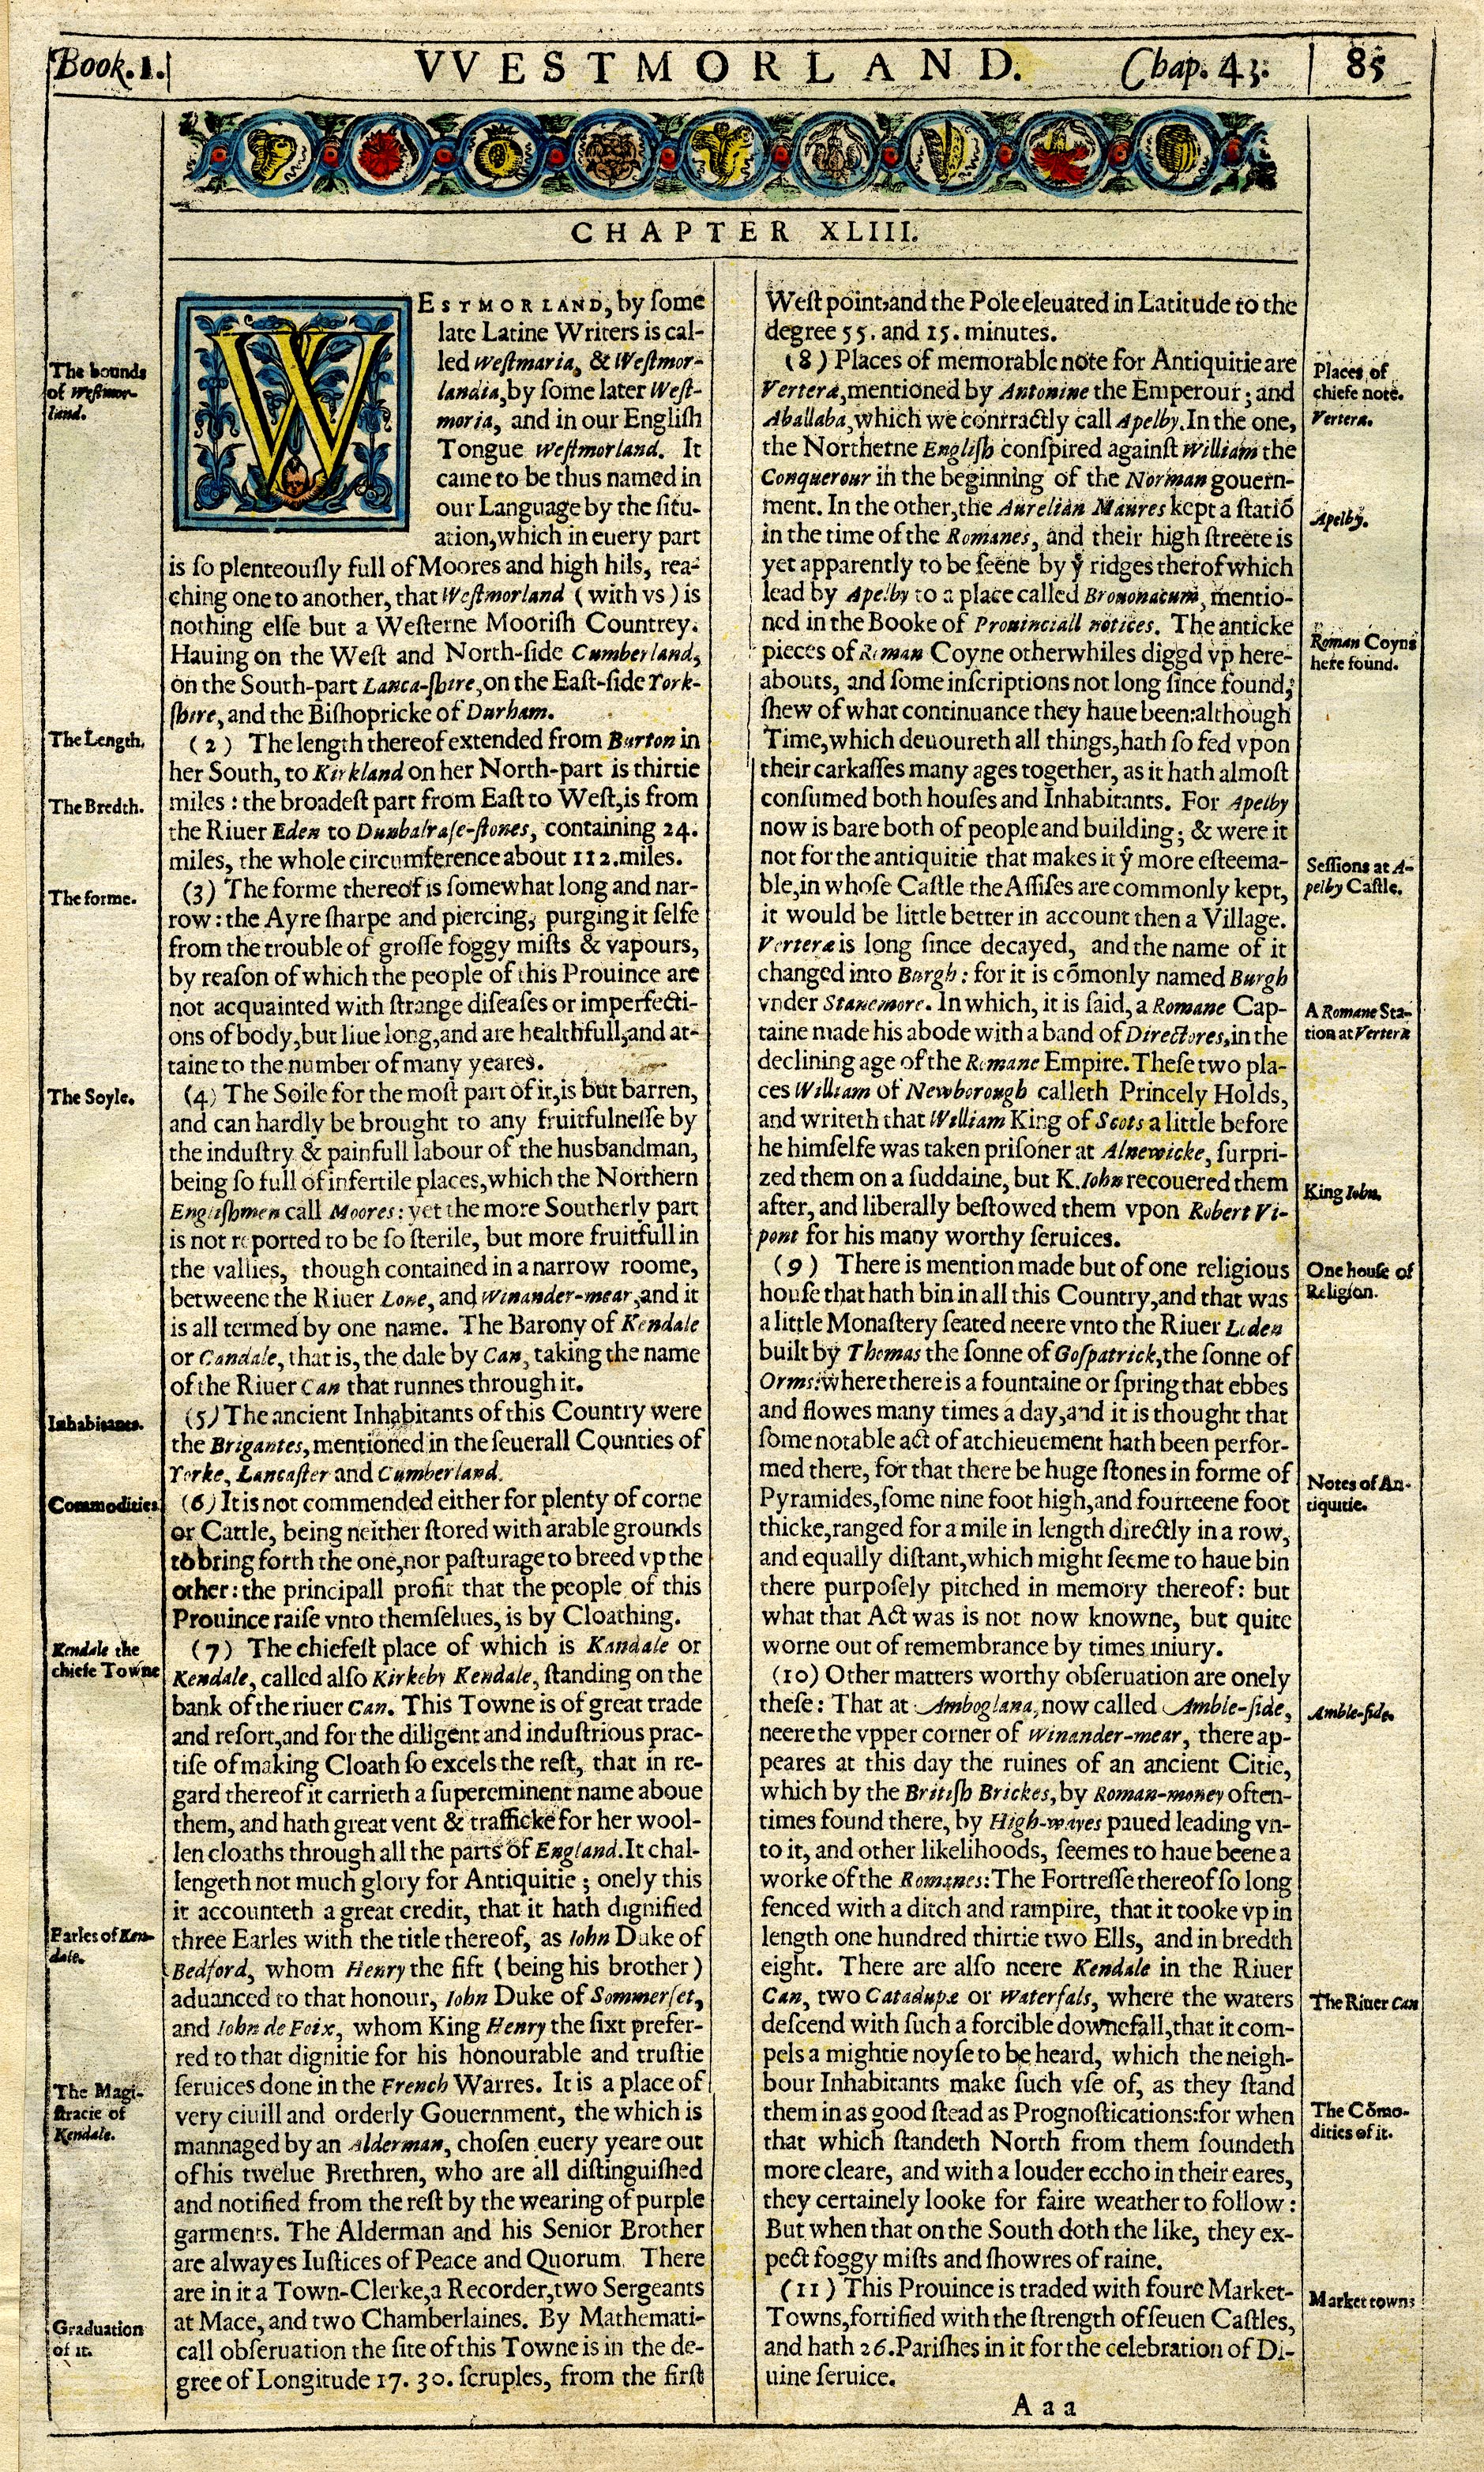 Book. 1.
VVESTMORLAND.
Chap. 43.
85
CHAPTER XLIII.
WESTMORLAND, by ſome
late Latine Writers is cal-
led Weſtmaria, & Weſtmor-
landia, by ſome later Weſt-
moria, and in our Engliſh
Tongue Weſtmorland. It
came to be thus named in
our Language by the ſitu-
ation, which in euery part
is ſo plenteouſly full of Moores and high hils, rea-
ching one to another, that Weſtmorland (with vs) is
nothing elſe but a Weſterne Mooriſh Countrey.
Hauing on the Weſt and North-ſide Cumberland,
on the South-part Lanca-ſhire, on the Eaſt-ſide York-
ſhire, and the Biſhopricke of Durham.
(2) The length thereof extended from Burton in
her South, to Kirkland on her North-part is thirtie
miles: the broadeſt part from Eaſt to Weſt, is from
the Riuer Eden to Dunbalraſe-ſtones, containing 24.
miles, the whole circumference about 112. miles.
(3) The forme thereof is ſomewhat long and nar-
row: the Ayre ſharpe and piercing, purging it ſelfe
from the trouble of groſſe foggy miſts & vapours,
by reaſon of which the people of this Prouince are
not acquainted with ſtrange diſeaſes or imperfecti-
ons of body, but liue long, and are healthfull, and at-
taine to the number of many yeares.
(4) The Soile for the moſt part of it, is but barren,
and can hardly be brought to any fruitfulneſſe by
the induſtry & painfull labour of the husbandman,
being ſo full of infertile places, which the Northern
Engliſhmen call Moores: yet the more Southerly part
is not reported to be ſo ſterile, but more fruitfull in
the vallies, though contained in a narrow roome,
betweene the Riuer Lone, and Winander-mear, and it
is all termed by one name. The Barony of Kendale
or Candale, that is, the dale by Can, taking the name
of the Riuer Can that runnes through it.
(5) The ancient Inhabitants of this Country were
the Brigantes, mentioned in the ſeuerall Counties of
Yorke, Lancaſter and Cumberland.
(6) It is not commended either for plenty of corne
or Cattle, being neither ſtored with arable grounds
to bring forth the one, nor paſturage to breed vp the
other: the principall profit that the people of this
Prouince raiſe vnto themſelues, is by Cloathing.
(7) The chiefeſt place of which is Kandale or
Kendale, called alſo Kirkeby Kendale, ſtanding on the
bank of the riuer Can. This Towne is of great trade
and reſort, and for the diligent and induſtrious prac-
tiſe of making Cloath ſo excels the reſt, that in re-
gard thereof it carrieth a ſupereminent name aboue
them, and hath great vent & trafficke for her wool-
len cloaths through all the parts of England. It chal-
lengeth not much glory for Antiquitie; onely this
it accounteth a great credit, that it hath dignified
three Earles with the title thereof, as Iohn Duke of
Bedford, whom Henry the fift (being his brother)
aduanced to that honour, Iohn Duke of Sommerſet,
and Iohn de Foix, whom King Henry the ſixt prefer-
red to that dignitie for his honourable and truſtie
ſeruices done in the French Warres. It is a place of
very ciuill and orderly Gouernment, the which is
mannaged by an Alderman, choſen euery yeare out
of his twelue Brethren, who are all diſtinguiſhed
and notified from the reſt by the wearing of purple
garments. The Alderman and his Senior Brother
are alwayes Iuſtices of Peace and Quorum. There
are in it a Town-Clerke, a Recorder, two Sergeants
at Mace, and two Chamberlaines. By Mathemati-
call obſeruation the ſite of this Towne is in the de-
gree of Longitude 17. 30. ſcruples, from the firſt
The bounds
of Weſtmor-
land.
The Length.
The Bredth.
The forme.
The Soyle.
Inhabitants.
Commodities
Kendale the
chiefe Towne
Earles of Ken-
dale.
The Magi-
ſtracie of
Kendale.
Graduation
of it.
Weſt point, and the Pole eleuated in Latitude to the
degree 55. and 15. minutes.
(8) Places of memorable note for Antiquitie are
Verteræ, mentioned by Antonine the Emperour; and
Aballaba, which we contractly call Apelby. In the one,
the Northerne Engliſh conſpired againſt William the
Conquerour in the beginning of the Norman gouern-
ment. In the other, the Aurelian Maures kept a ſtatiō
in the time of the Romanes, and their high ſtreete is
yet apparently to be ſeene by ẙ ridges therof which
lead by Apelby to a place called Brouonacum, mentio-
ned in the Booke of Prouinciall notices. The anticke
pieces of Roman Coyne otherwhiles diggd vp here-
abouts, and ſome inſcriptions not long ſince found,
ſhew of what continuance they haue been: although
Time, which deuoureth all things, hath ſo fed vpon
their carkaſſes many ages together, as it hath almoſt
conſumed both houſes and Inhabitants. For Apelby
now is bare both of people and building; & were it
not for the antiquitie that makes it ẙ more eſteema-
ble, in whoſe Caſtle the Aſſiſes are commonly kept,
it would be little better in account then a Village.
Verteræ is long ſince decayed, and the name of it
changed into Burgh: for it is cōmonly named Burgh
vnder Stanemore. In which, it is ſaid, a Romane Cap-
taine made his abode with a band of Directores, in the
declining age of the Romane Empire. Theſe two pla-
ces William of Newborough calleth Princely Holds,
and writeth that William King of Scots a little before
he himſelfe was taken priſoner at Alnewicke, ſurpri-
zed them on a ſuddaine, but K. Iohn recouered them
after, and liberally beſtowed them vpon Robert Vi-
pont for his many worthy ſeruices.
(9) There is mention made but of one religious
houſe that hath bin in all this Country, and that was
a little Monaſtery ſeated neere vnto the Riuer Loden
built by Thomas the ſonne of Goſpatrick, the ſonne of
Orms: where there is a fountaine or ſpring that ebbes
and flowes many times a day, and it is thought that
ſome notable act of atchieuement hath been perfor-
med there, for that there be huge ſtones in forme of
Pyramides, ſome nine foot high, and fourteene foot
thicke, ranged for a mile in length directly in a row,
and equally diſtant, which might ſeeme to haue bin
there purpoſely pitched in memory thereof: but
what that Act was is not now knowne, but quite
worne out of remembrance by times iniury.
(10) Other matters worthy obſeruation are onely
theſe: That at Amboglana, now called Amble-ſide,
neere the vpper corner of Winander-mear, there ap-
peares at this day the ruines of an ancient Citie,
which by the Britiſh Brickes, by Roman-money often-
times found there, by High-wayes paued leading vn-
to it, and other likelihoods, ſeemes to haue beene a
worke of the Romanes: The Fortreſſe thereof ſo long
fenced with a ditch and rampire, that it tooke vp in
length one hundred thirtie two Ells, and in bredth
eight. There are alſo neere Kendale in the Riuer
Can, two Catadupæ or Waterfals, where the waters
deſcend with ſuch a forcible downefall, that it com-
pels a mightie noyſe to be heard, which the neigh-
bour Inhabitants make ſuch vſe of, as they ſtand
them in as good ſtead as Prognoſtications: for when
that which ſtandeth North from them ſoundeth
more cleare, and with a louder eccho in their eares,
they certainely looke for faire weather to follow:
But when that on the South doth the like, they ex-
pect foggy miſts and ſhowres of raine.
(11) This Prouince is traded with foure Market-
Towns, fortified with the ſtrength of ſeuen Caſtles,
and hath 26. Pariſhes in it for the celebration of Di-
uine ſeruice.
Places of
chiefe note.
Verteræ.
Apelby.
Roman Coyns
here found.
Seſſions at A-
pelby Caſtle.
A Romane Sta-
tion at Verteræ
King Iohn.
One houſe of
Religion.
Notes of An-
tiquitie.
Amble-ſide.
The Riuer Can
The Cōmo-
dities of it.
Market towns
Aaa